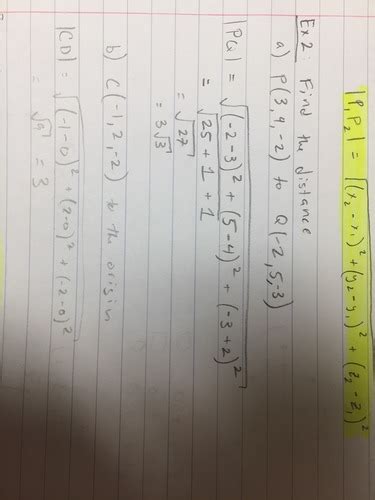 |P₁P₂| = √(x₂ - x₁)² + (y₂ - y₁)² + (z₂ - z₁)²
Ex 2: Find the distance
a) P(3, 4, -2) to Q(-2, 5, -3)
|PQ| = √(-2-3)² + (5-4)² + (-3+2)²
= √25 + 1 + 1
= √27
= 3√3
b) C(-1, 2, -2) to the origin
|CD| = √(-1-0)² + (2-0)² + (-2-0)²
= √9 = 3